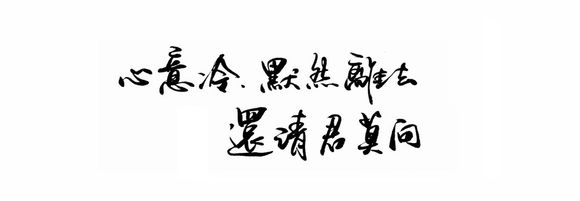 心意冷.默然離去
還請君莫問